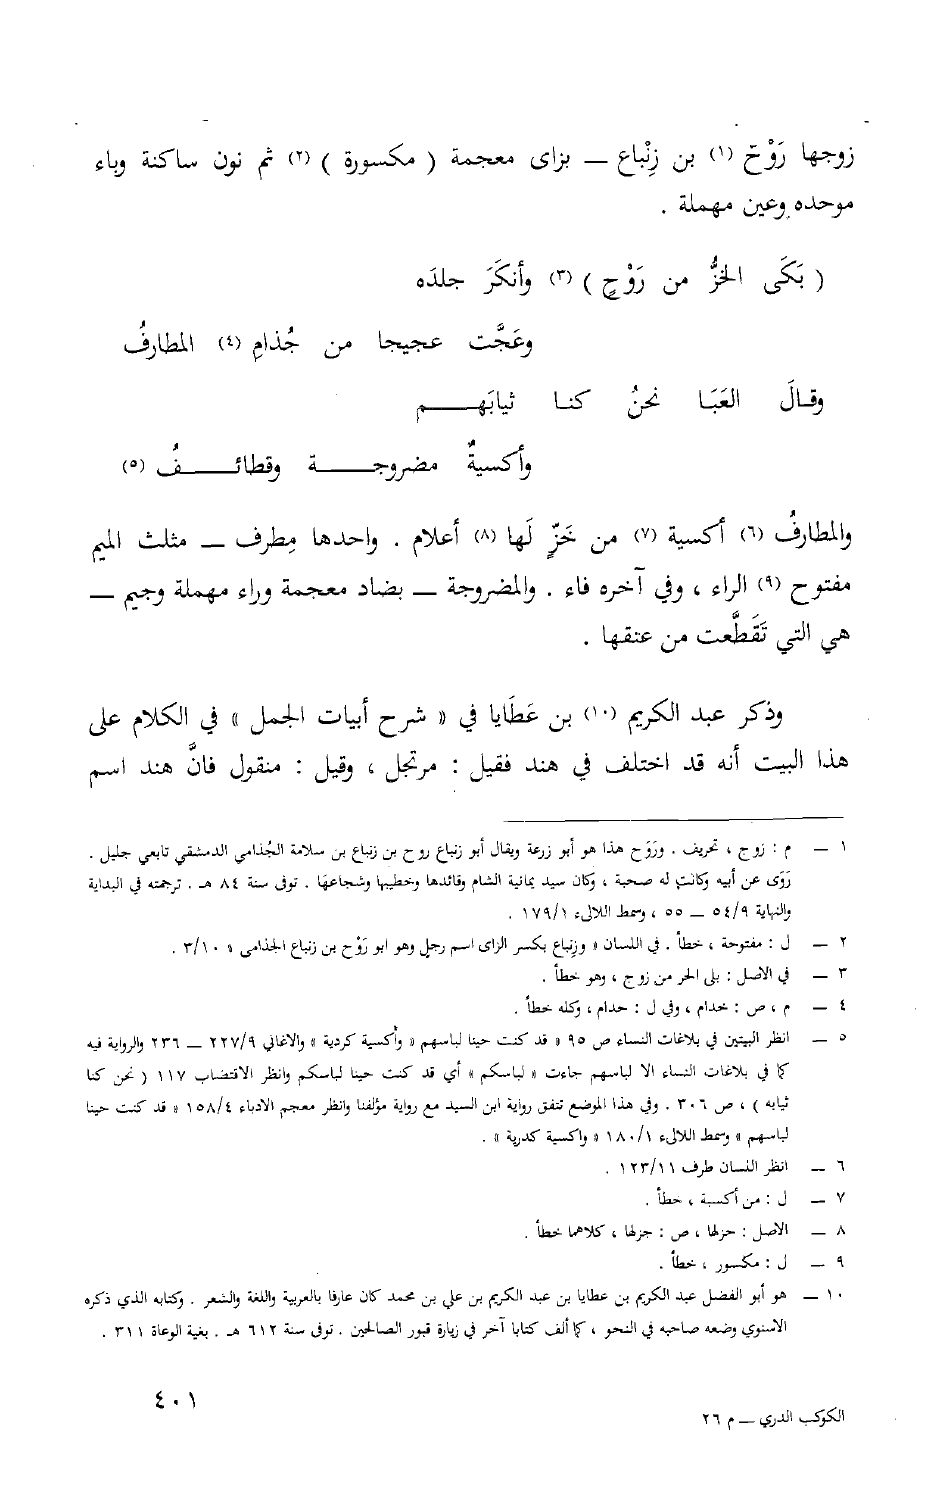 زوجها رَوْح (١) بن زِنْباع — بزاى معجمة ( مكسورة ) (٢) ثم نون ساكنة وباء
موحده وعين مهملة .
( بَكَى الخزُّ من رَوْحٍ ) (٣) وأنكَرَ جلدَه
وعَجَّت عجيجا من جُذامِ (٤) المطارفُ
وقالَ العَبَا نحنُ كنا ثيابَهم
وأكسيةٌ مضروجة وقطائفُ (٥)
والمطارفُ (٦) أكسية (٧) من خَزٍّ لَها (٨) أعلام . واحدها مِطرف — مثلث الميم
مفتوح (٩) الراء ، وفي آخره فاء . والمضروجة — بضاد معجمة وراء مهملة وجيم —
هي التي تَقَطَّعت من عتقها .
وذكر عبد الكريم (١٠) بن عَطَايا في « شرح أبيات الجمل » في الكلام على
هذا البيت أنه قد اختلف في هند فقيل : مرتجل ، وقيل : منقول فانَّ هند اسم
١ — م : زوج ، تحريف . ورَوْح هذا هو أبو زرعة ويقال أبو زنباع روح بن زنباع بن سلامة الجُذامي الدمشقي تابعي جليل .
رَوَى عن أبيه وكانت له صحبة ، وكان سيد يمانية الشام وقائدها وخطيبها وشجاعها . توفى سنة ٨٤ هـ . ترجمته في البداية
والنهاية ٥٤/٩ — ٥٥ ، وسمط اللالىء ١٧٩/١ .
٢ — ل : مفتوحة ، خطأ . في اللسان « وزِنباع بكسر الزاى اسم رجل وهو ابو رَوْح بن زنباع الجذامى » ٣/١٠ .
٣ — في الاصل : بلى الحر من زوج ، وهو خطأ .
٤ — م ، ص : خدام ، وفي ل : حدام ، وكله خطأ .
٥ — انظر البيتين في بلاغات النساء ص ٩٥ « قد كنت حينا لباسهم « وأكسية كردية » والاغاني ٢٢٧/٩ — ٢٣٦ والرواية فيه
كما في بلاغات النساء الا لباسهم جاءت « لباسكم » أي قد كنت حينا لباسكم وانظر الاقتضاب ١١٧ ( نحن كنا
ثيابه ) ، ص ٣٠٦ . وفي هذا الموضع تتفق رواية ابن السيد مع رواية مؤلفنا وانظر معجم الادباء ١٥٨/٤ « قد كنت حينا
لباسهم » وسمط اللالىء ١٨٠/١ « واكسية كدرية » .
٦ — انظر اللسان طرف ١٢٣/١١ .
٧ — ل : من أكسية ، خطأ .
٨ — الاصل : حزلها ، ص : جزلها ، كلاهما خطأ .
٩ — ل : مكسور ، خطأ .
١٠ — هو أبو الفضل عبد الكريم بن عطايا بن عبد الكريم بن علي بن محمد كان عارفا بالعربية واللغة والشعر . وكتابه الذي ذكره
الاسنوي وضعه صاحبه في النحو ، كما ألف كتابا آخر في زيارة قبور الصالحين . توفى سنة ٦١٢ هـ . بغية الوعاة ٣١١ .
٤٠١
الكوكب الدري — م ٢٦